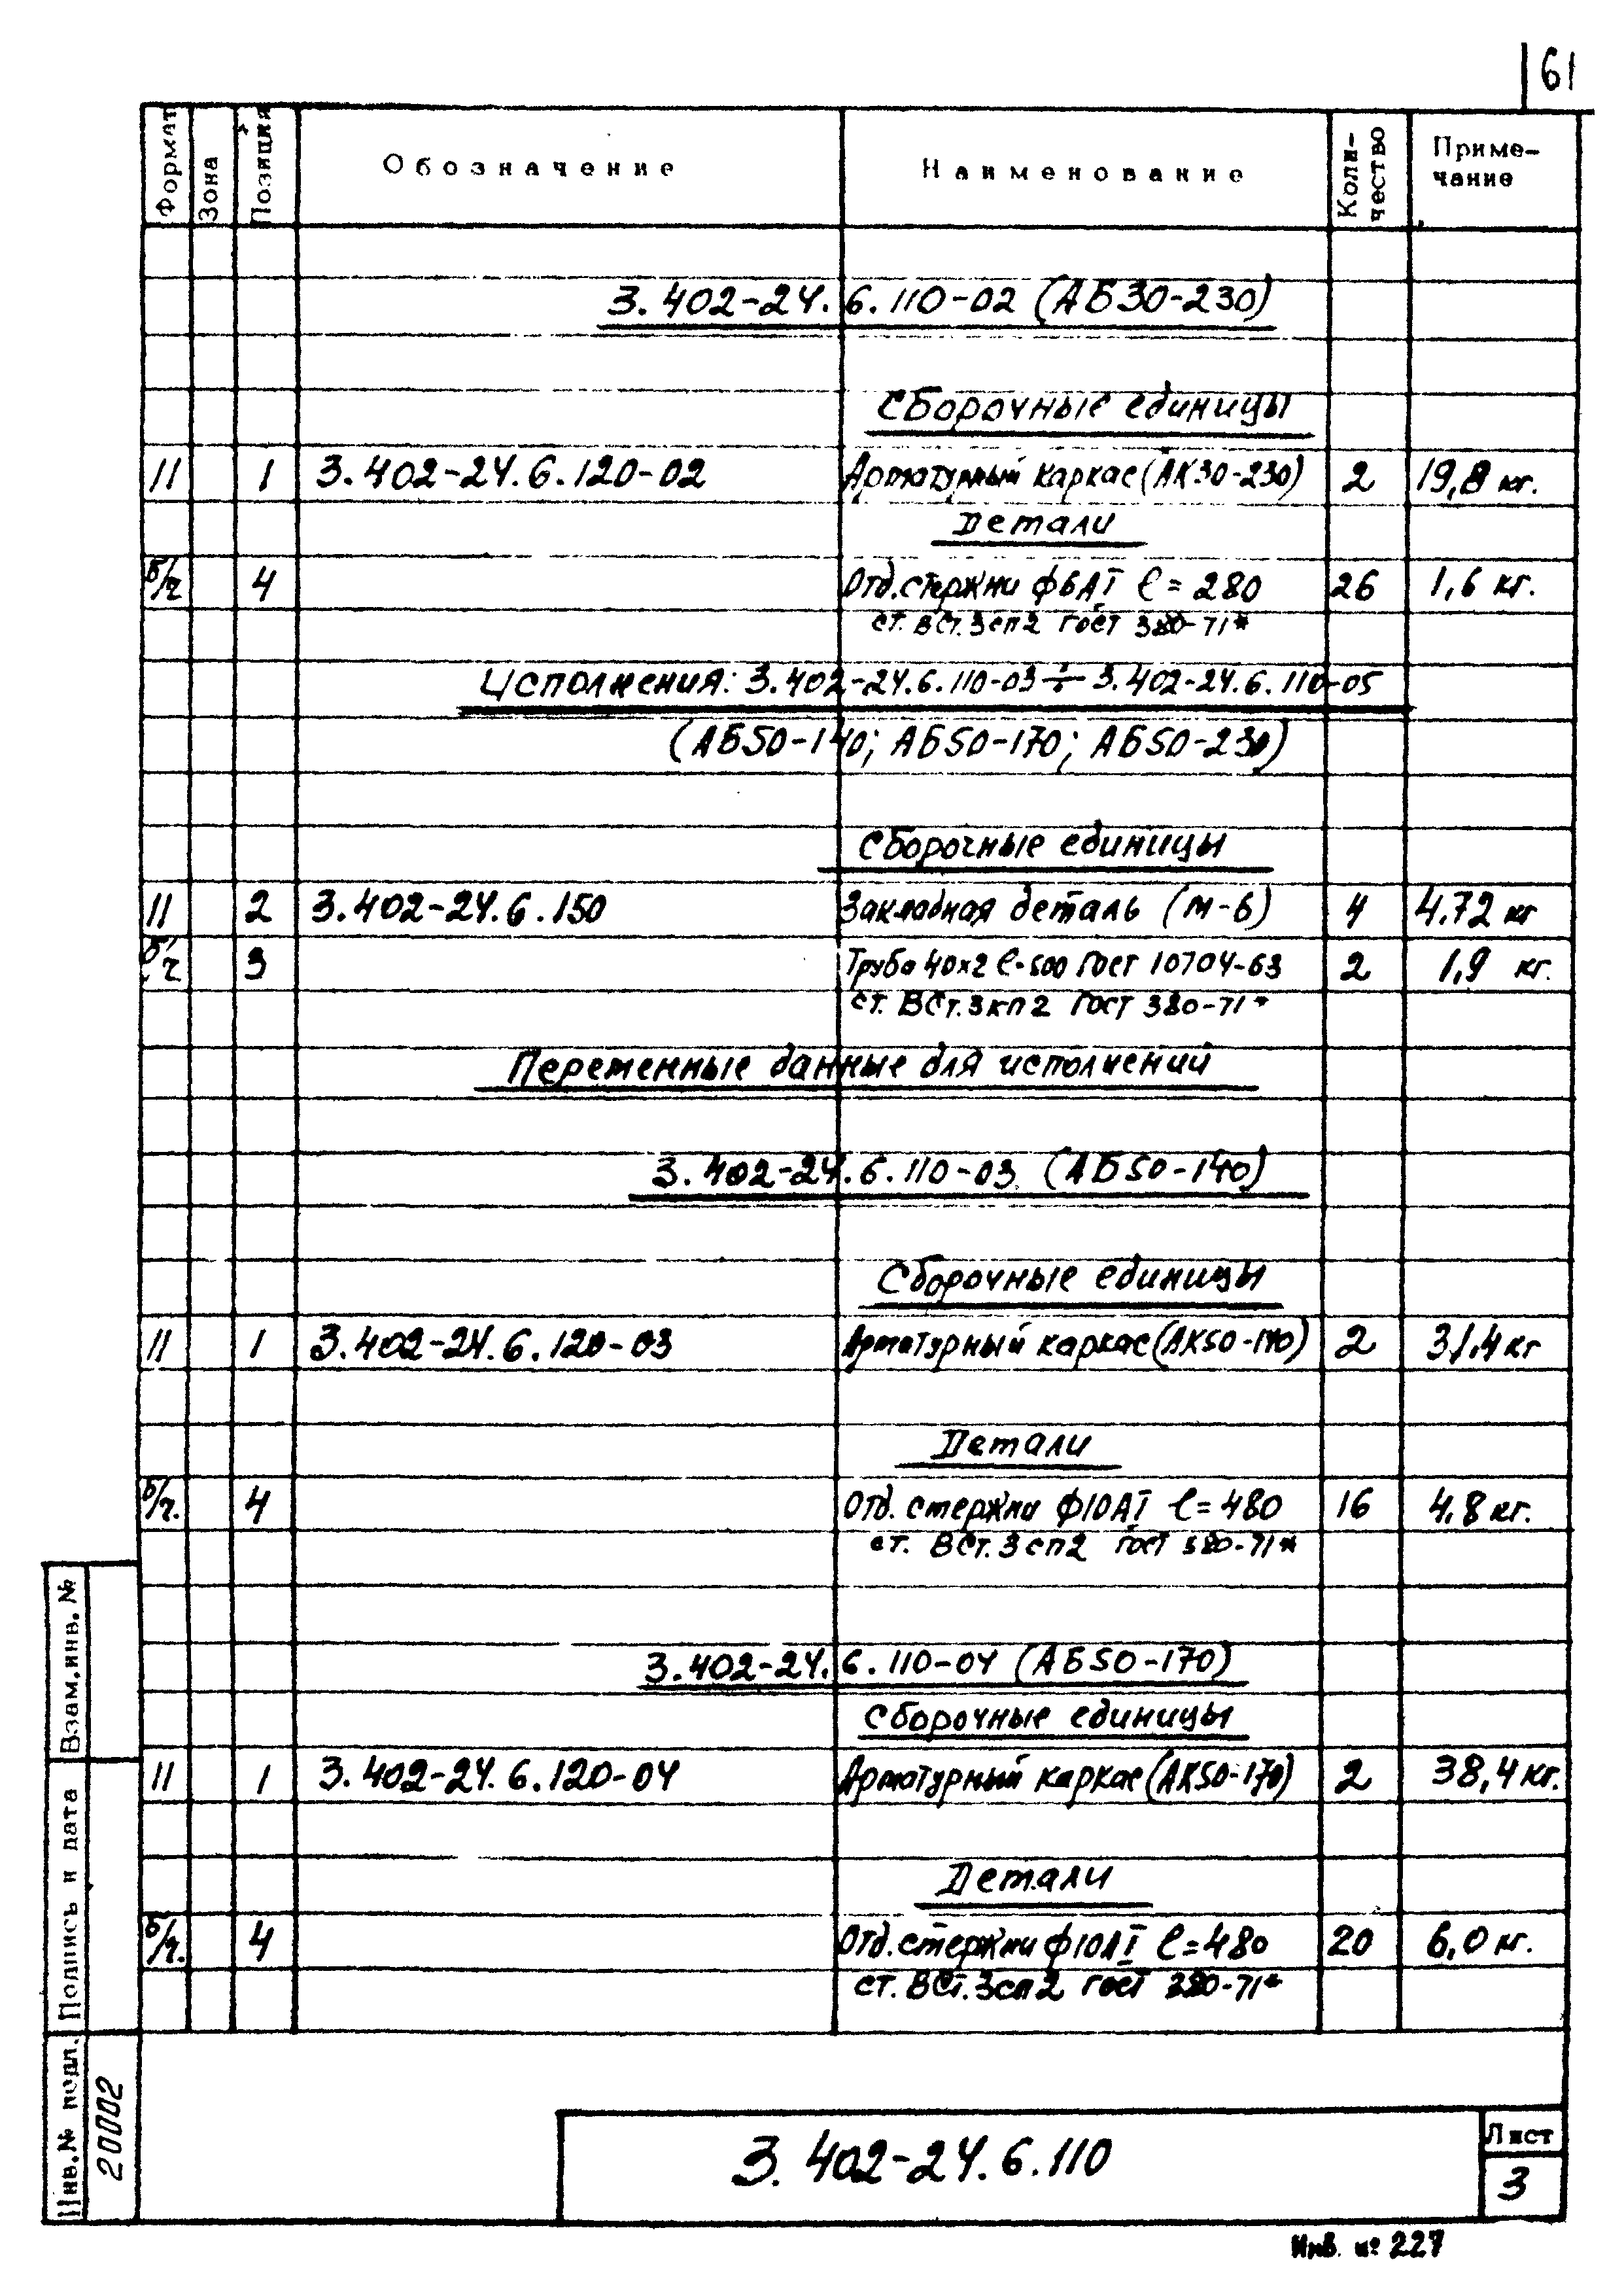 61
Формат Зона Позиция Обозначение Наименование Коли-чество Приме-чание
3.402-24.6.110-02 (АБ30-230)
Сборочные единицы
11 1 3.402-24.6.120-02 Арматурный каркас (АК30-230) 2 19,8 кг.
Детали
б/ч 4 Отд. стержни ф6АI ℓ = 280 26 1,6 кг.
ст. ВСт.3сп2 ГОСТ 380-71*
Исполнения: 3.402-24.6.110-03 ÷ 3.402-24.6.110-05
(АБ50-140; АБ50-170; АБ50-230)
Сборочные единицы
11 2 3.402-24.6.150 Закладная деталь (М-6) 4 4.72 кг
б/ч 3 Труба 40×2 ℓ=500 ГОСТ 10704-63 2 1,9 кг.
ст. ВСт.3кп2 ГОСТ 380-71*
Переменные данные для исполнений
3.402-24.6.110-03 (АБ50-140)
Сборочные единицы
11 1 3.402-24.6.120-03 Арматурный каркас (АК50-140) 2 31.4 кг
Детали
б/ч. 4 Отд. стержни ф10АI ℓ = 480 16 4.8 кг.
ст. ВСт.3сп2 ГОСТ 380-71*
3.402-24.6.110-04 (АБ50-170)
Сборочные единицы
11 1 3.402-24.6.120-04 Арматурный каркас (АК50-170) 2 38,4 кг.
Детали
б/ч. 4 Отд. стержни ф10АI ℓ = 480 20 6,0 кг.
ст. ВСт.3сп2 ГОСТ 380-71*
Взам.инв. №
Подпись и дата
Инв.№ подл. 20002
3.402-24.6.110
Лист
3
Инв. № 227